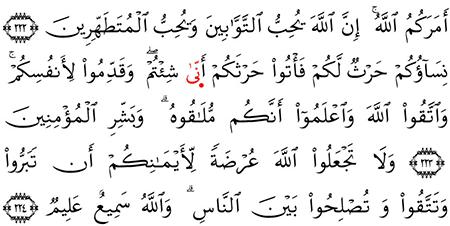 أَمَرَكُمُ ٱللَّهُ ۚ إِنَّ ٱللَّهَ يُحِبُّ ٱلتَّوَّٰبِينَ وَيُحِبُّ ٱلْمُتَطَهِّرِينَ ﴿٢٢٢﴾
نِسَآؤُكُمْ حَرْثٌ لَّكُمْ فَأْتُوا۟ حَرْثَكُمْ أَنَّىٰ شِئْتُمْ ۖ وَقَدِّمُوا۟ لِأَنفُسِكُمْ ۚ
وَٱتَّقُوا۟ ٱللَّهَ وَٱعْلَمُوٓا۟ أَنَّكُم مُّلَٰقُوهُ ۗ وَبَشِّرِ ٱلْمُؤْمِنِينَ
﴿٢٢٣﴾ وَلَا تَجْعَلُوا۟ ٱللَّهَ عُرْضَةً لِّأَيْمَٰنِكُمْ أَن تَبَرُّوا۟
وَتَتَّقُوا۟ وَتُصْلِحُوا۟ بَيْنَ ٱلنَّاسِ ۗ وَٱللَّهُ سَمِيعٌ عَلِيمٌ ﴿٢٢٤﴾